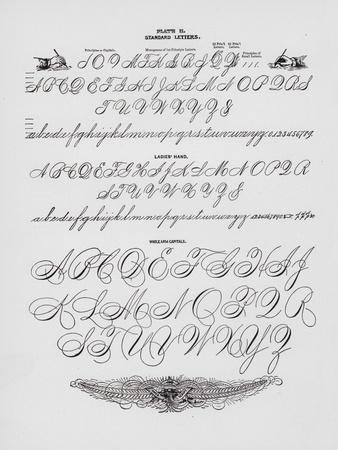 PLATE II.
STANDARD LETTERS.
Principles or Capitals. Monograms of 1st Principle Letters.
Principles of Small Letters.
A B C D E F G H I J K L M N O P Q R S
T U V W X Y Z &
a b c d e f g h i j k l m n o p q r s t u v w x y z 1 2 3 4 5 6 7 8 9 0
LADIES' HAND.
A B C D E F G H I J K L M N O P Q R
S T U V W X Y Z &
a b c d e f g h i j k l m n o p q r s t u v w x y z
WHOLE ARM CAPITALS.
A B C D E F G H I J
K L M N O P Q R
S T U V W X Y Z